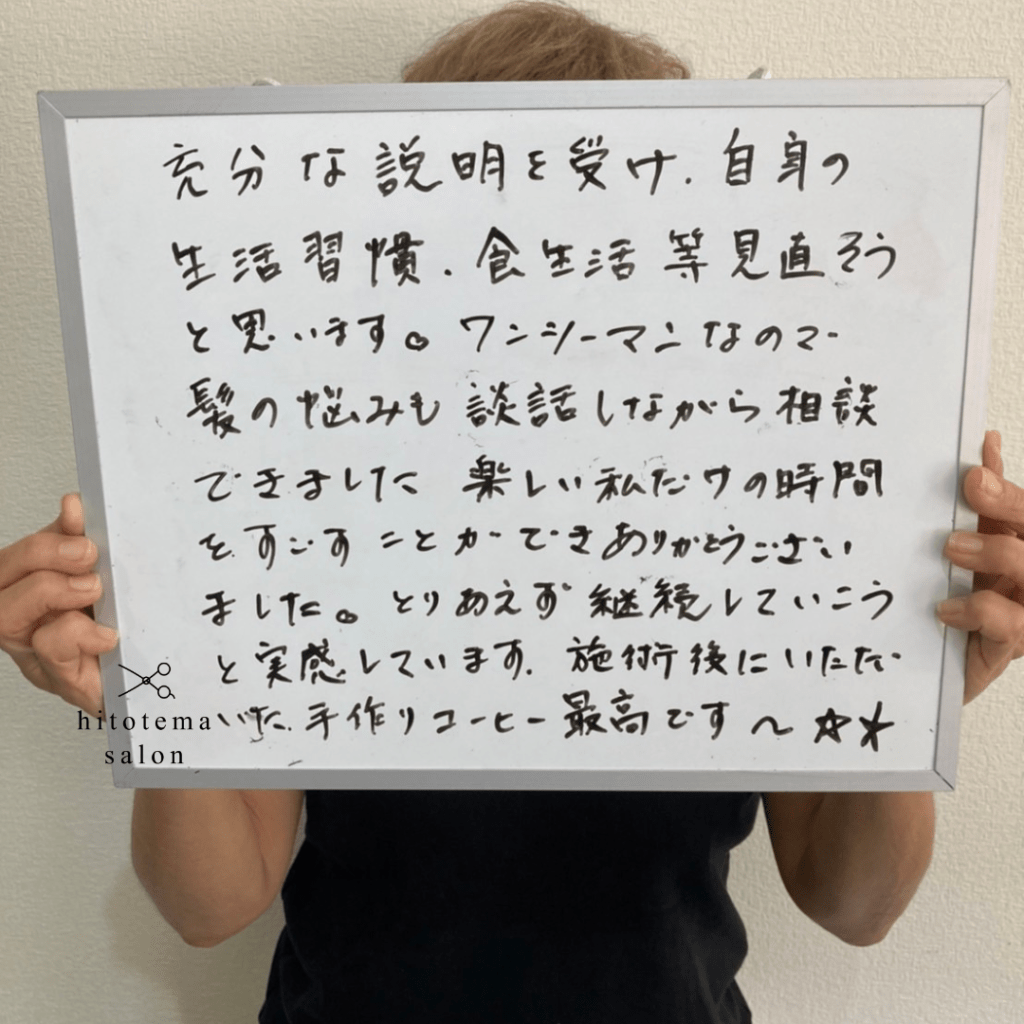 充分な説明を受け、自身の
生活習慣、食生活等見直そう
と思います。ワンシーマンなので
髪の悩みも談話しながら相談
できました 楽しい私だけの時間
をすごすことができありがとうござい
ました。とりあえず継続していこう
と実感しています。施術後にいただ
いた、手作りコーヒー最高です～☆☆
hitotema
salon